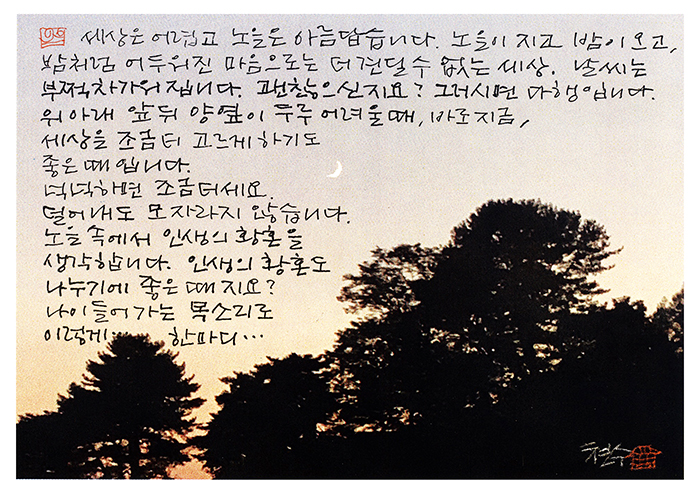 세상은 어렵고 노을은 아름답습니다. 노을이 지고 밤이 오고,
밤처럼 어두워진 마음으로는 더 견딜 수 없는 세상. 날씨는
부쩍 차가워집니다. 괜찮으신지요? 그러시면 다행입니다.
위 아래 앞 뒤 양 옆이 두루 어려울 때, 바로 지금,
세상을 조금 더 고르게 하기도
좋은 때입니다.
넉넉하면 조금 더세요.
덜어내도 모자라지 않습니다.
노을 속에서 인생의 황혼을
생각합니다. 인생의 황혼도
나누기에 좋은 때지요?
나이들어가는 목소리로
이렇게··· 한마디···